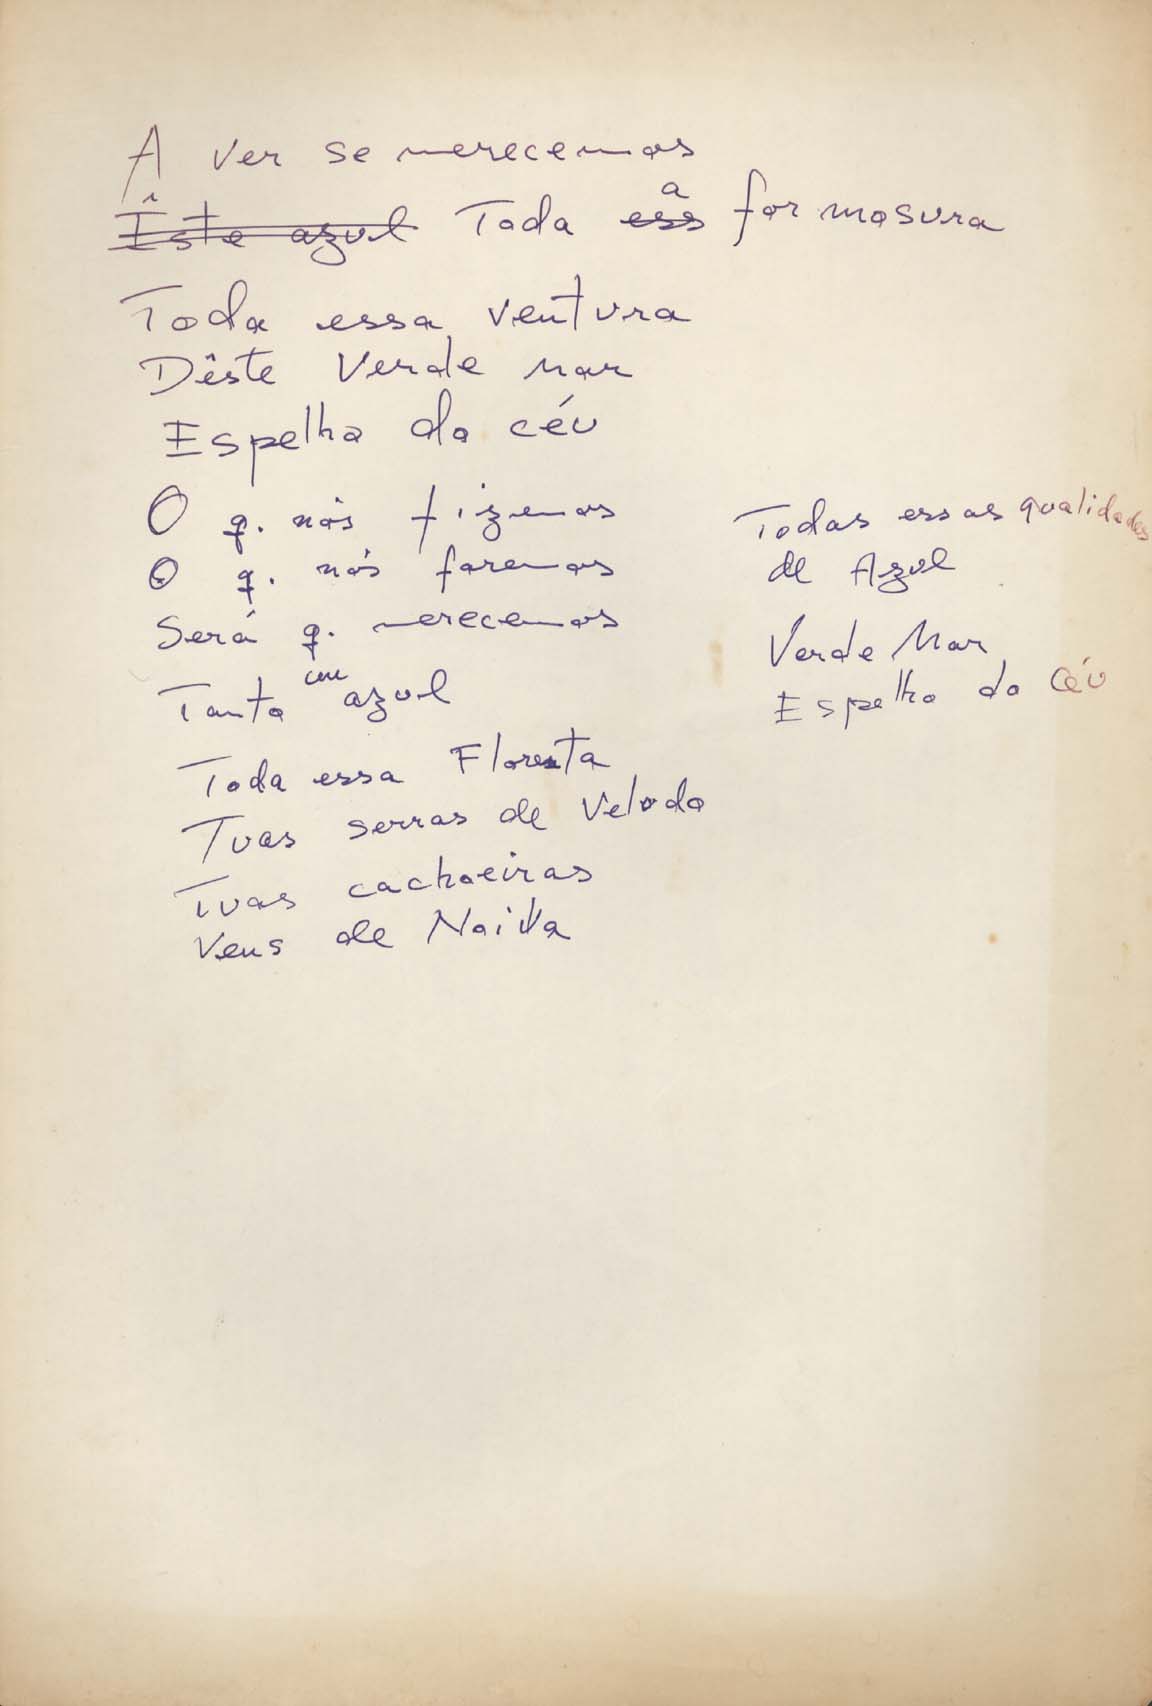 A ver se merecemos
Êste azul Toda essa formosura
Toda essa ventura
Dêste Verde mar
Espelho do céu
O q. nós fizemos
O q. nós faremos
Será q. merecemos
Tanto céu azul
Toda essa Floresta
Tuas serras de Veludo
Tuas cachoeiras
Veus de Noiva
Todas essas qualidades
de Azul
Verde Mar
Espelho do Céu